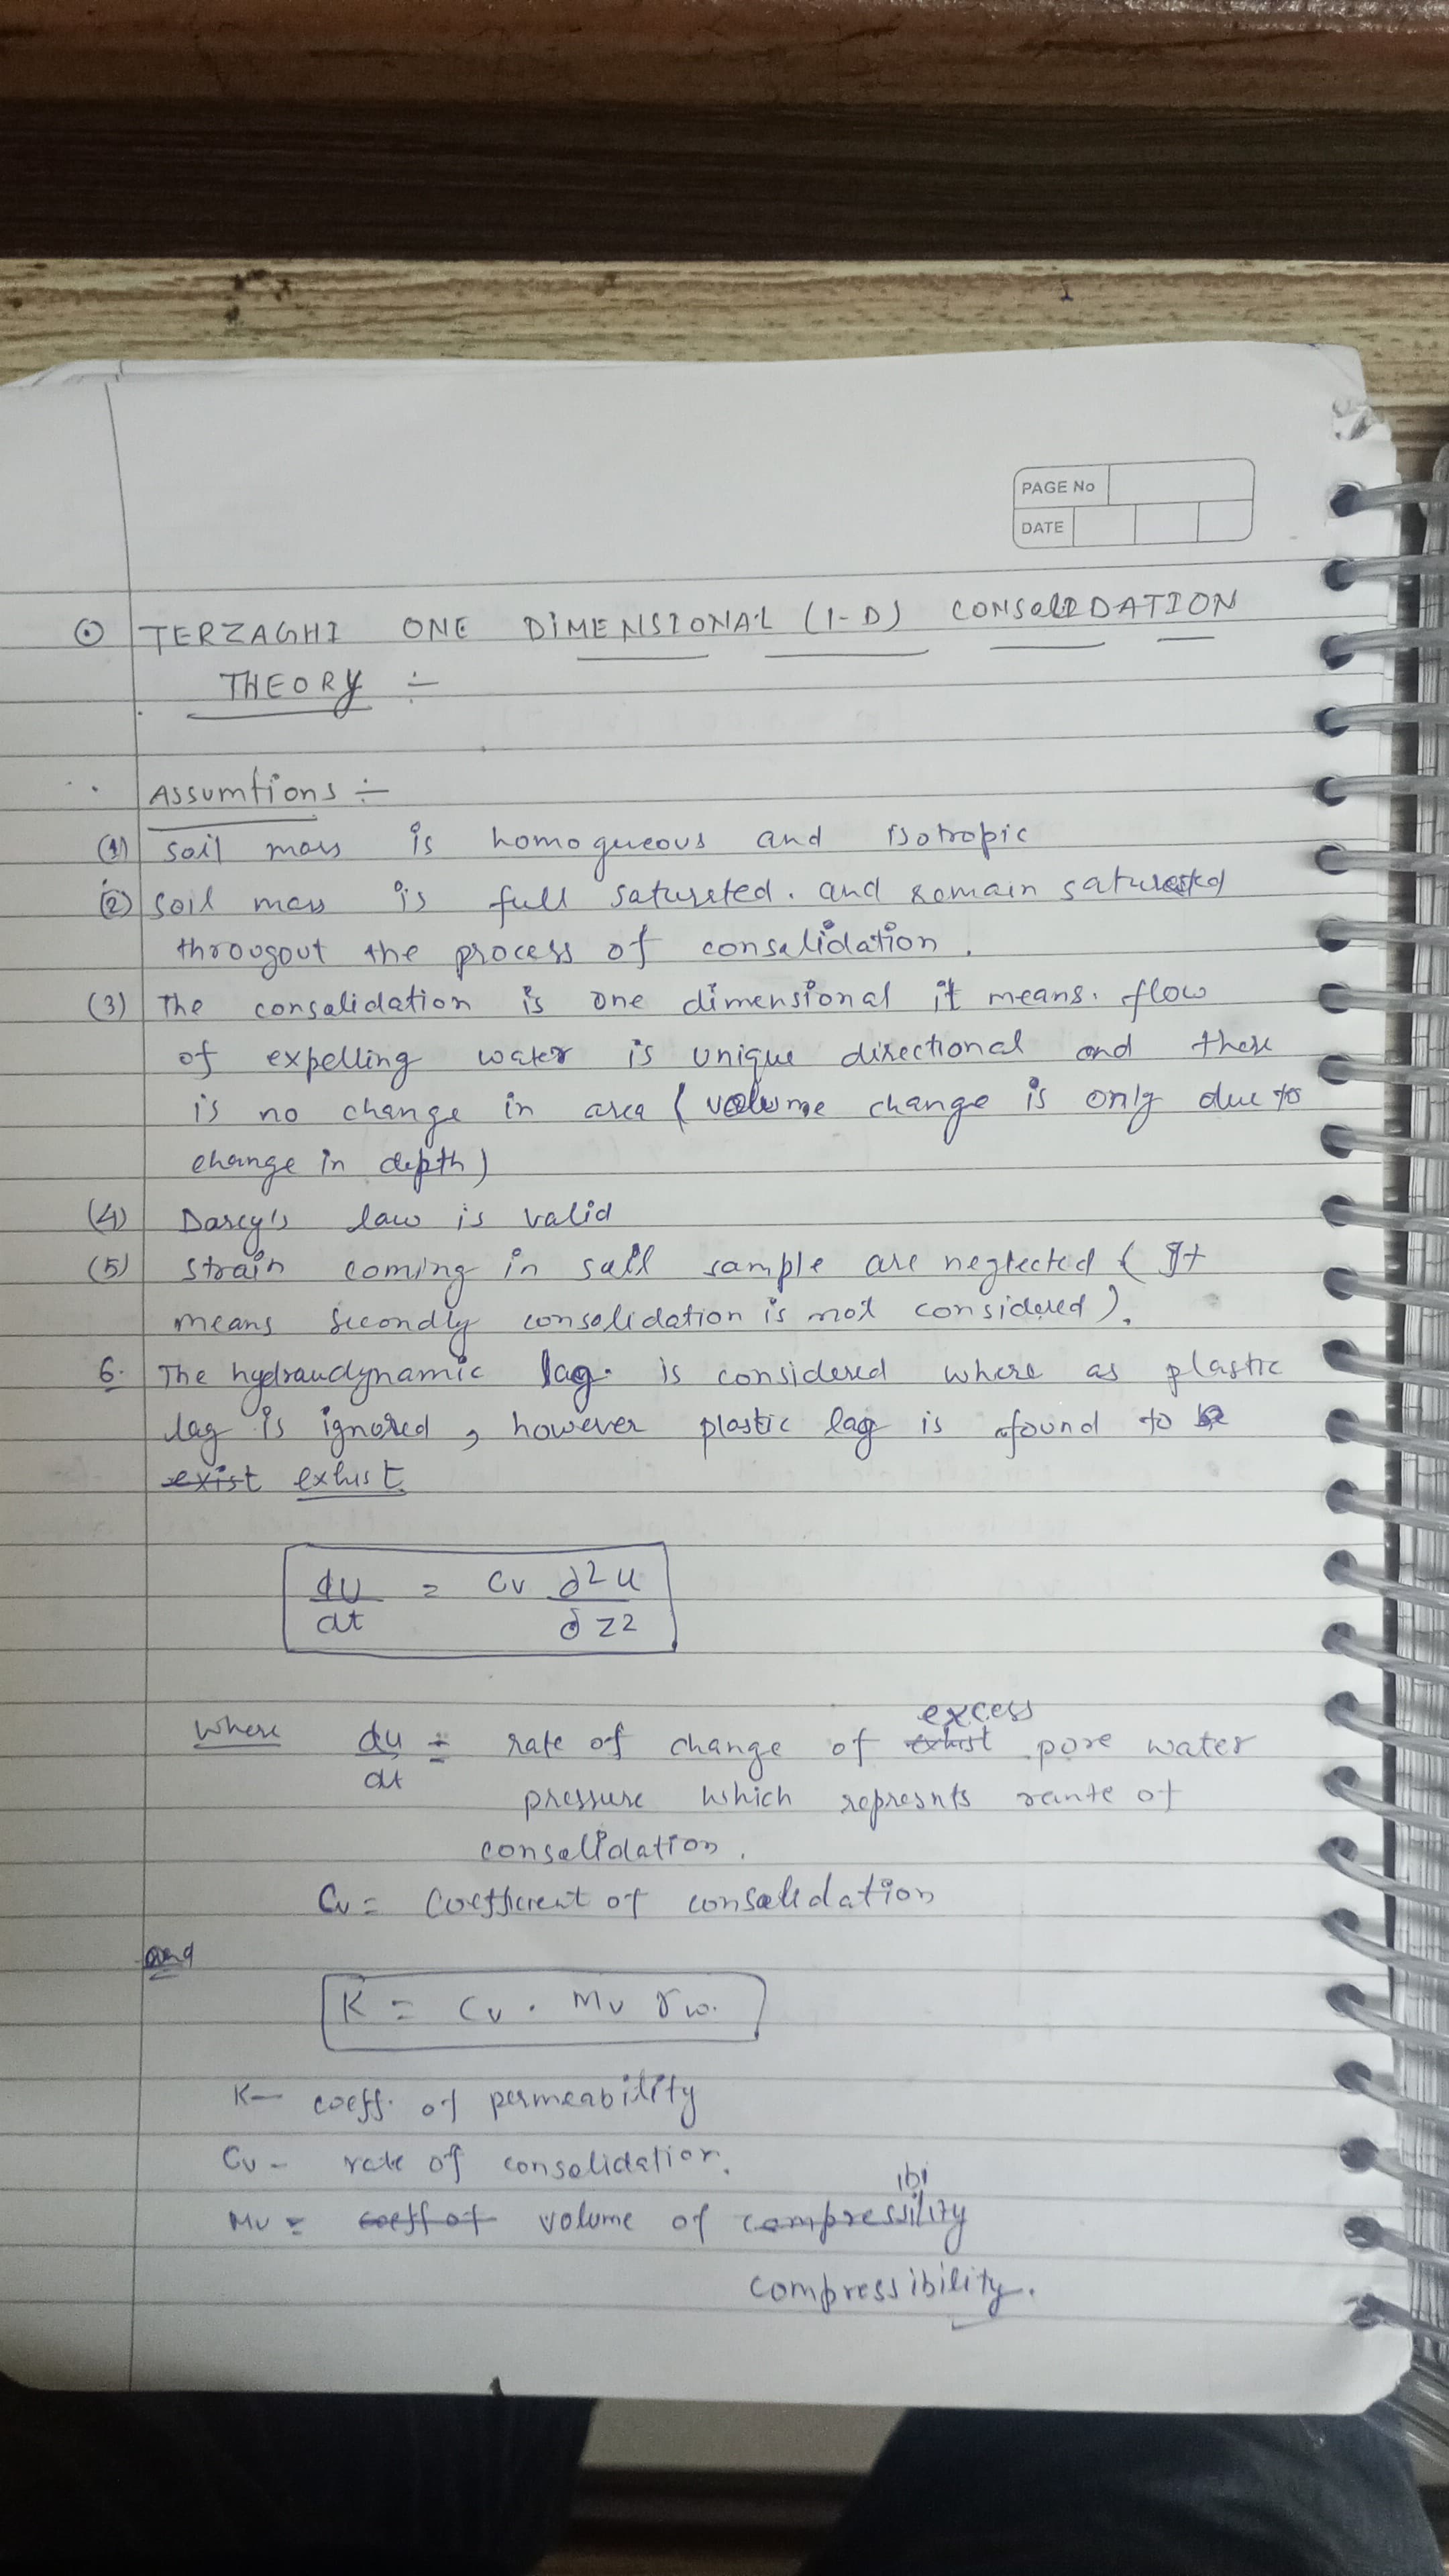 PAGE No
DATE
TERZAGHI ONE DIMENSIONAL (1-D) CONSOLIDATION
THEORY ÷
Assumtions ÷
(1) soil mass is homogueous and isotropic
(2) soil mass is full saturated. and remain saturated
througout the process of consalidation.
(3) The consalidation is one dimensional it means. flow
of expelling water is unique directional and there
is no change in area (volume change is only due to
change in depth)
(4) Darcy's law is valid
(5) strain coming in sail sample are neglected (It
means secondly consolidation is not considered).
6. The hydraudynamic lag. is considered where as plastic
lag is ignored, however plastic lag is found to be
exist exhist.
du/dt = Cv ∂²u/∂z²
where du/dt = rate of change of exhist excess pore water
pressure which represnts rante of
consalidation.
Cv = Coefficient of consalidation
and
K = Cv . Mv γw.
K— coeff. of permeability
Cv - rate of consolidation.
Mv = coeff of volume of compressility ibi
compressibility.